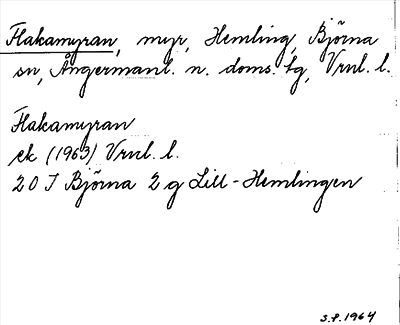 Flakamyran, myr, Hemling, Björna
sn, Ångermanl. n. doms. tg, Vrnl. l.
Flakamyran
ek (1963) Vrnl. l.
20 J Björna 2 g Lill-Hemlingen
S.P. 1964